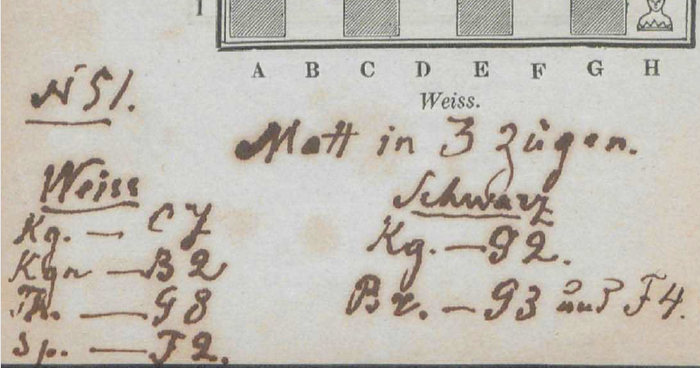 1
A B C D E F G H
Weiss.
N 51.
Matt in 3 Zügen.
Weiss
Kg. — C 7
Kgn — B 2
Th. — G 8
Sp. — F 2.
Schwarz
Kg. — G 2.
Br. — G 3 und F 4.